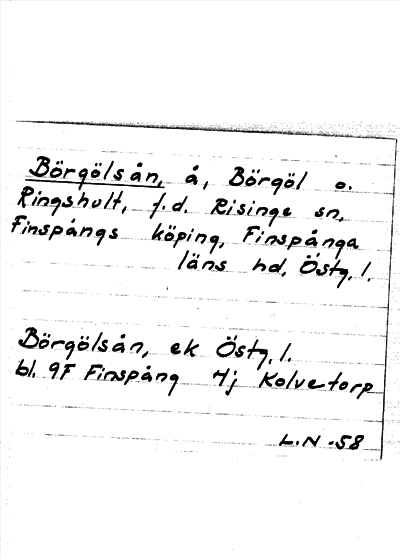 Börgölsån, å, Börgöl o.
Ringshult, f.d. Risinge sn,
Finspångs köping, Finspånga
läns hd, Östg. l.
Börgölsån, ek Östg. l.
bl. 9F Finspång 4j Kolvetorp
L.N -58